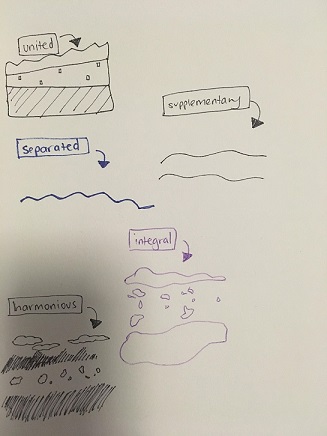 united
supplementary
separated
integral
harmonious